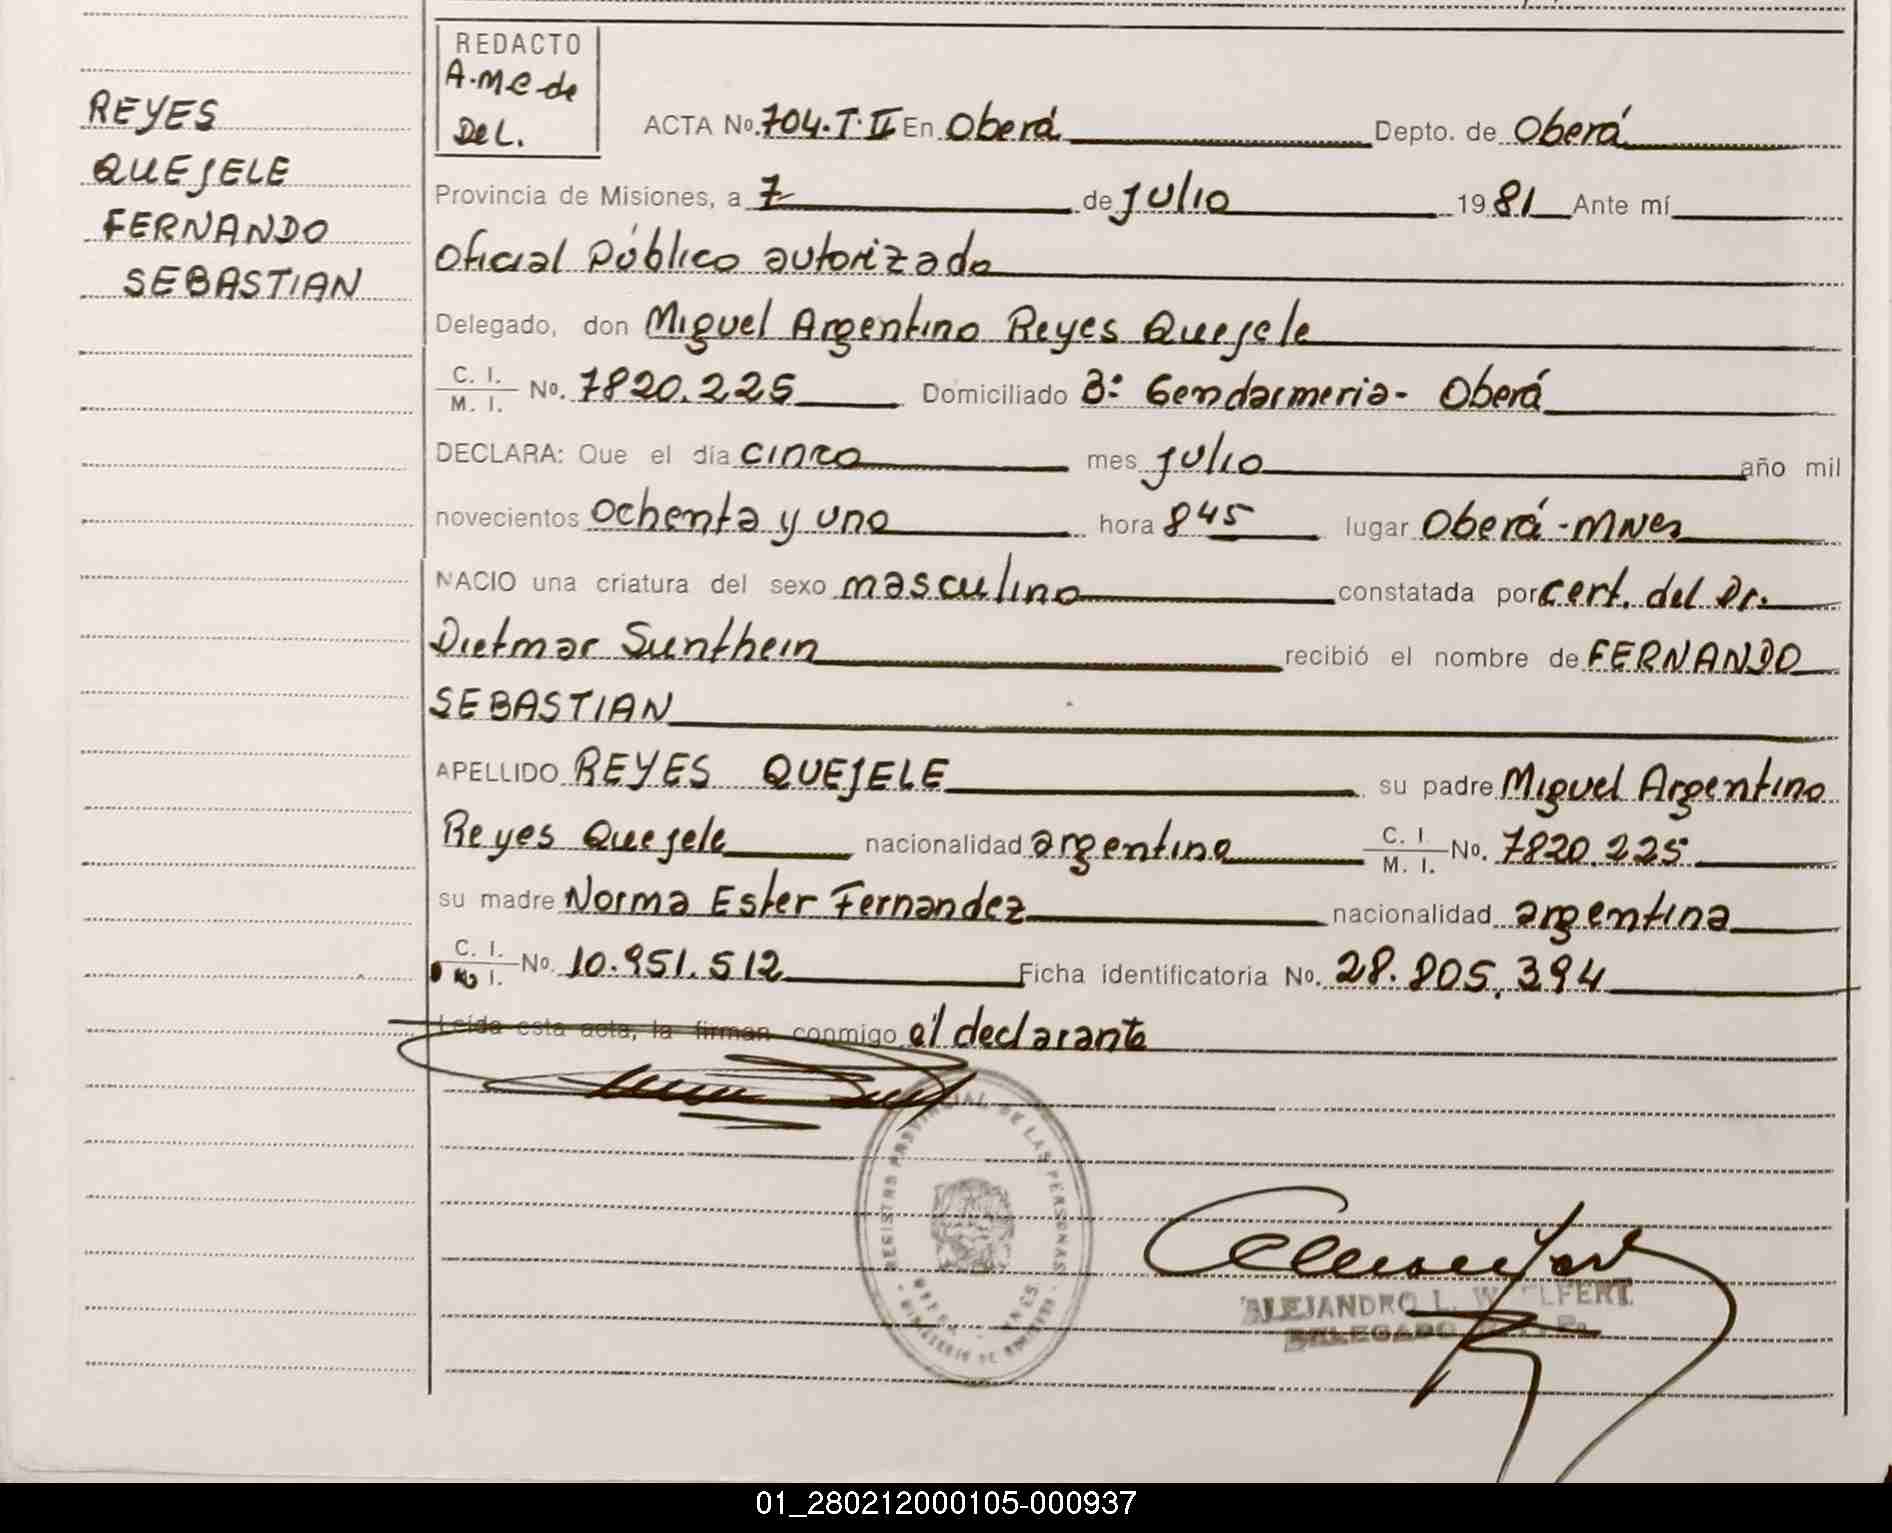 REDACTO
A.M.C de
Del.
REYES
QUEJELE
FERNANDO
SEBASTIAN
ACTA No. 704.T.II En Oberá Depto. de Oberá
Provincia de Misiones, a 7 de julio 1981 Ante mí
Oficial Público autorizado
Delegado, don Miguel Argentino Reyes Quejele
C. I. M. I. No. 7820.225 Domiciliado Bº Gendarmeria- Oberá
DECLARA: Que el día cinco mes julio año mil
novecientos ochenta y uno hora 845 lugar Oberá-MNes
NACIO una criatura del sexo masculino constatada por cert. del Dr.
Dietmar Sunthein recibió el nombre de FERNANDO
SEBASTIAN
APELLIDO REYES QUEJELE su padre Miguel Argentino
Reyes Quejele nacionalidad argentina C. I. M. I. No. 7820.225
su madre Norma Ester Fernandez nacionalidad argentina
C. I. I. No. 10.951.512 Ficha identificatoria No. 28.805.394
Leída esta acta, la firman conmigo el declarante
REGISTRO PROVINCIAL DE LAS PERSONAS
OBERA - MNES
MINISTERIO DE GOBIERNO
ALEJANDRO L.
DELEGADO
01_280212000105-000937